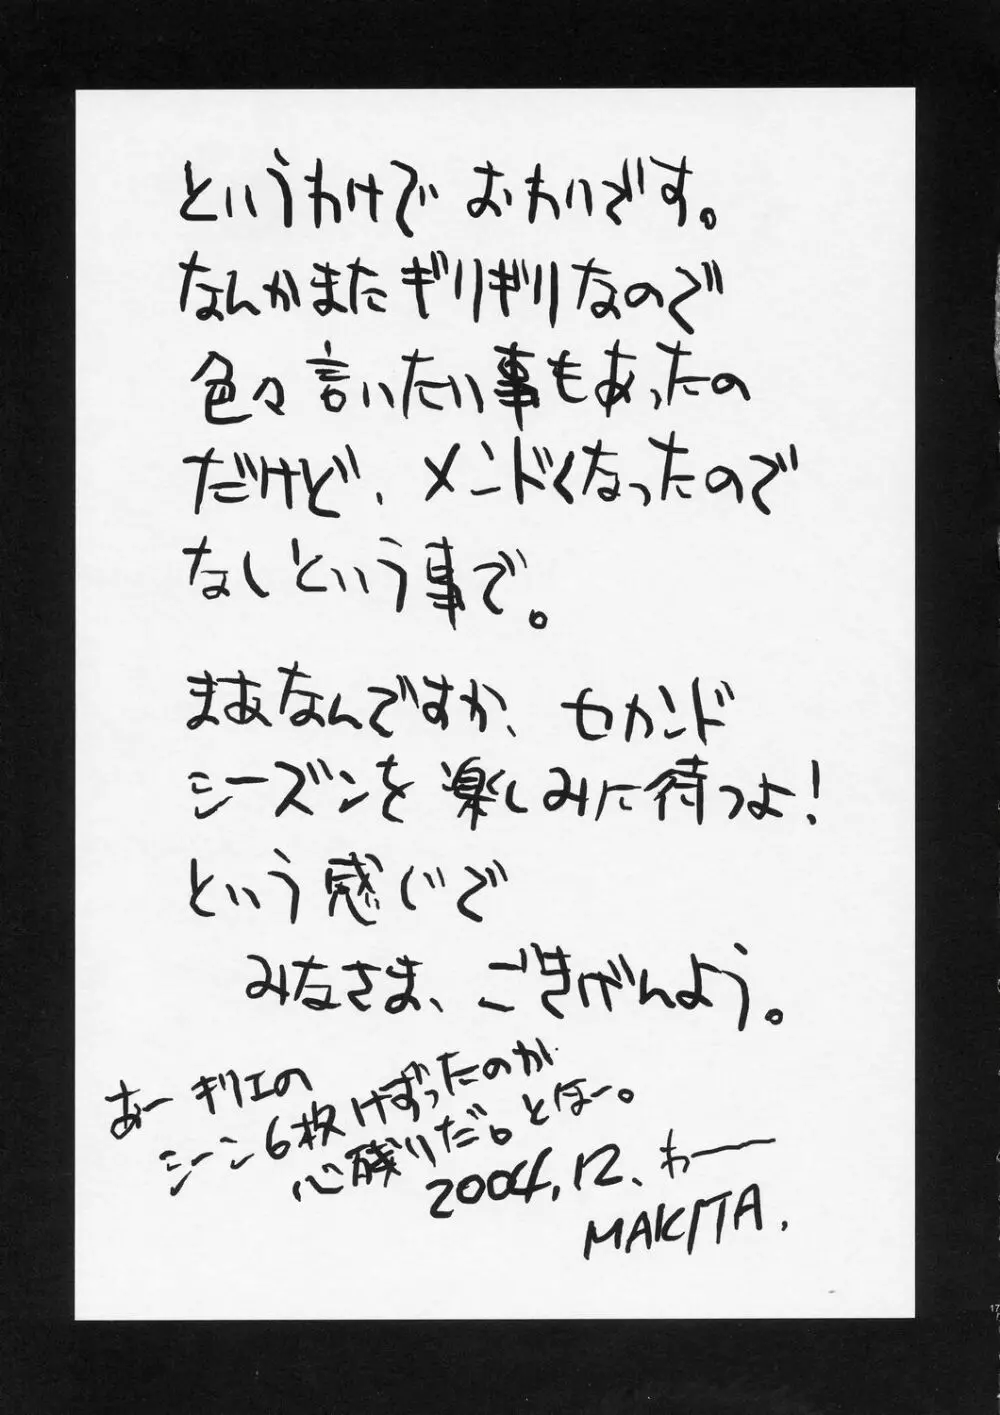 というわけで おわりです。
なんかまたギリギリなので
色々言いたい事もあったの
だけど、メンドくなったので
なしという事で。
まあなんですか、セカンド
シーズンを楽しみに待つよ!
という感じで
みなさま、ごきげんよう。
あー キリエの
シーン6枚けずったのが
心残りだ。とほー。
2004,12、わー
MAKITA.
17